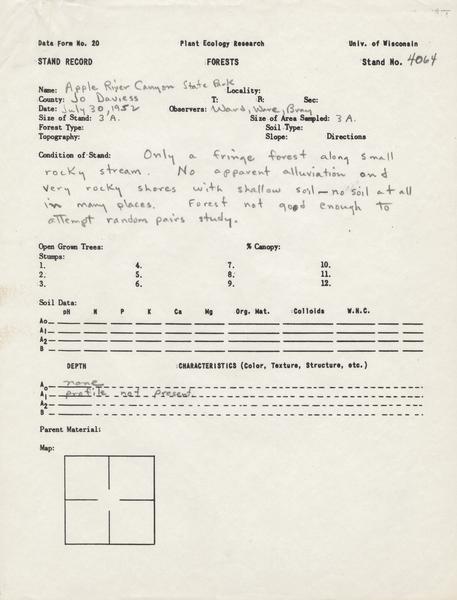 Data Form No. 20 Plant Ecology Research Univ. of Wisconsin
STAND RECORD FORESTS Stand No. 4064
Name: Apple River Canyon State Park Locality:
County: Jo Daviess T: R: Sec:
Date: July 30, 1952 Observers: Ward, Ware, Bray
Size of Stand: 3 A. Size of Area Sampled: 3 A.
Forest Type: Soil Type:
Topography: Slope: Directions
Condition of Stand: Only a fringe forest along small
rocky stream. No apparent alluviation and
very rocky shores with shallow soil - no soil at all
in many places. Forest not good enough to
attempt random pairs study.
Open Grown Trees: % Canopy:
Stumps:
1. 4. 7. 10.
2. 5. 8. 11.
3. 6. 9. 12.
Soil Data:
pH N P K Ca Mg Org. Mat. Colloids W.H.C.
A₀
A₁
A₂
B
DEPTH CHARACTERISTICS (Color, Texture, Structure, etc.)
A₀ none
A₁ profile not present
A₂
B
Parent Material:
Map: